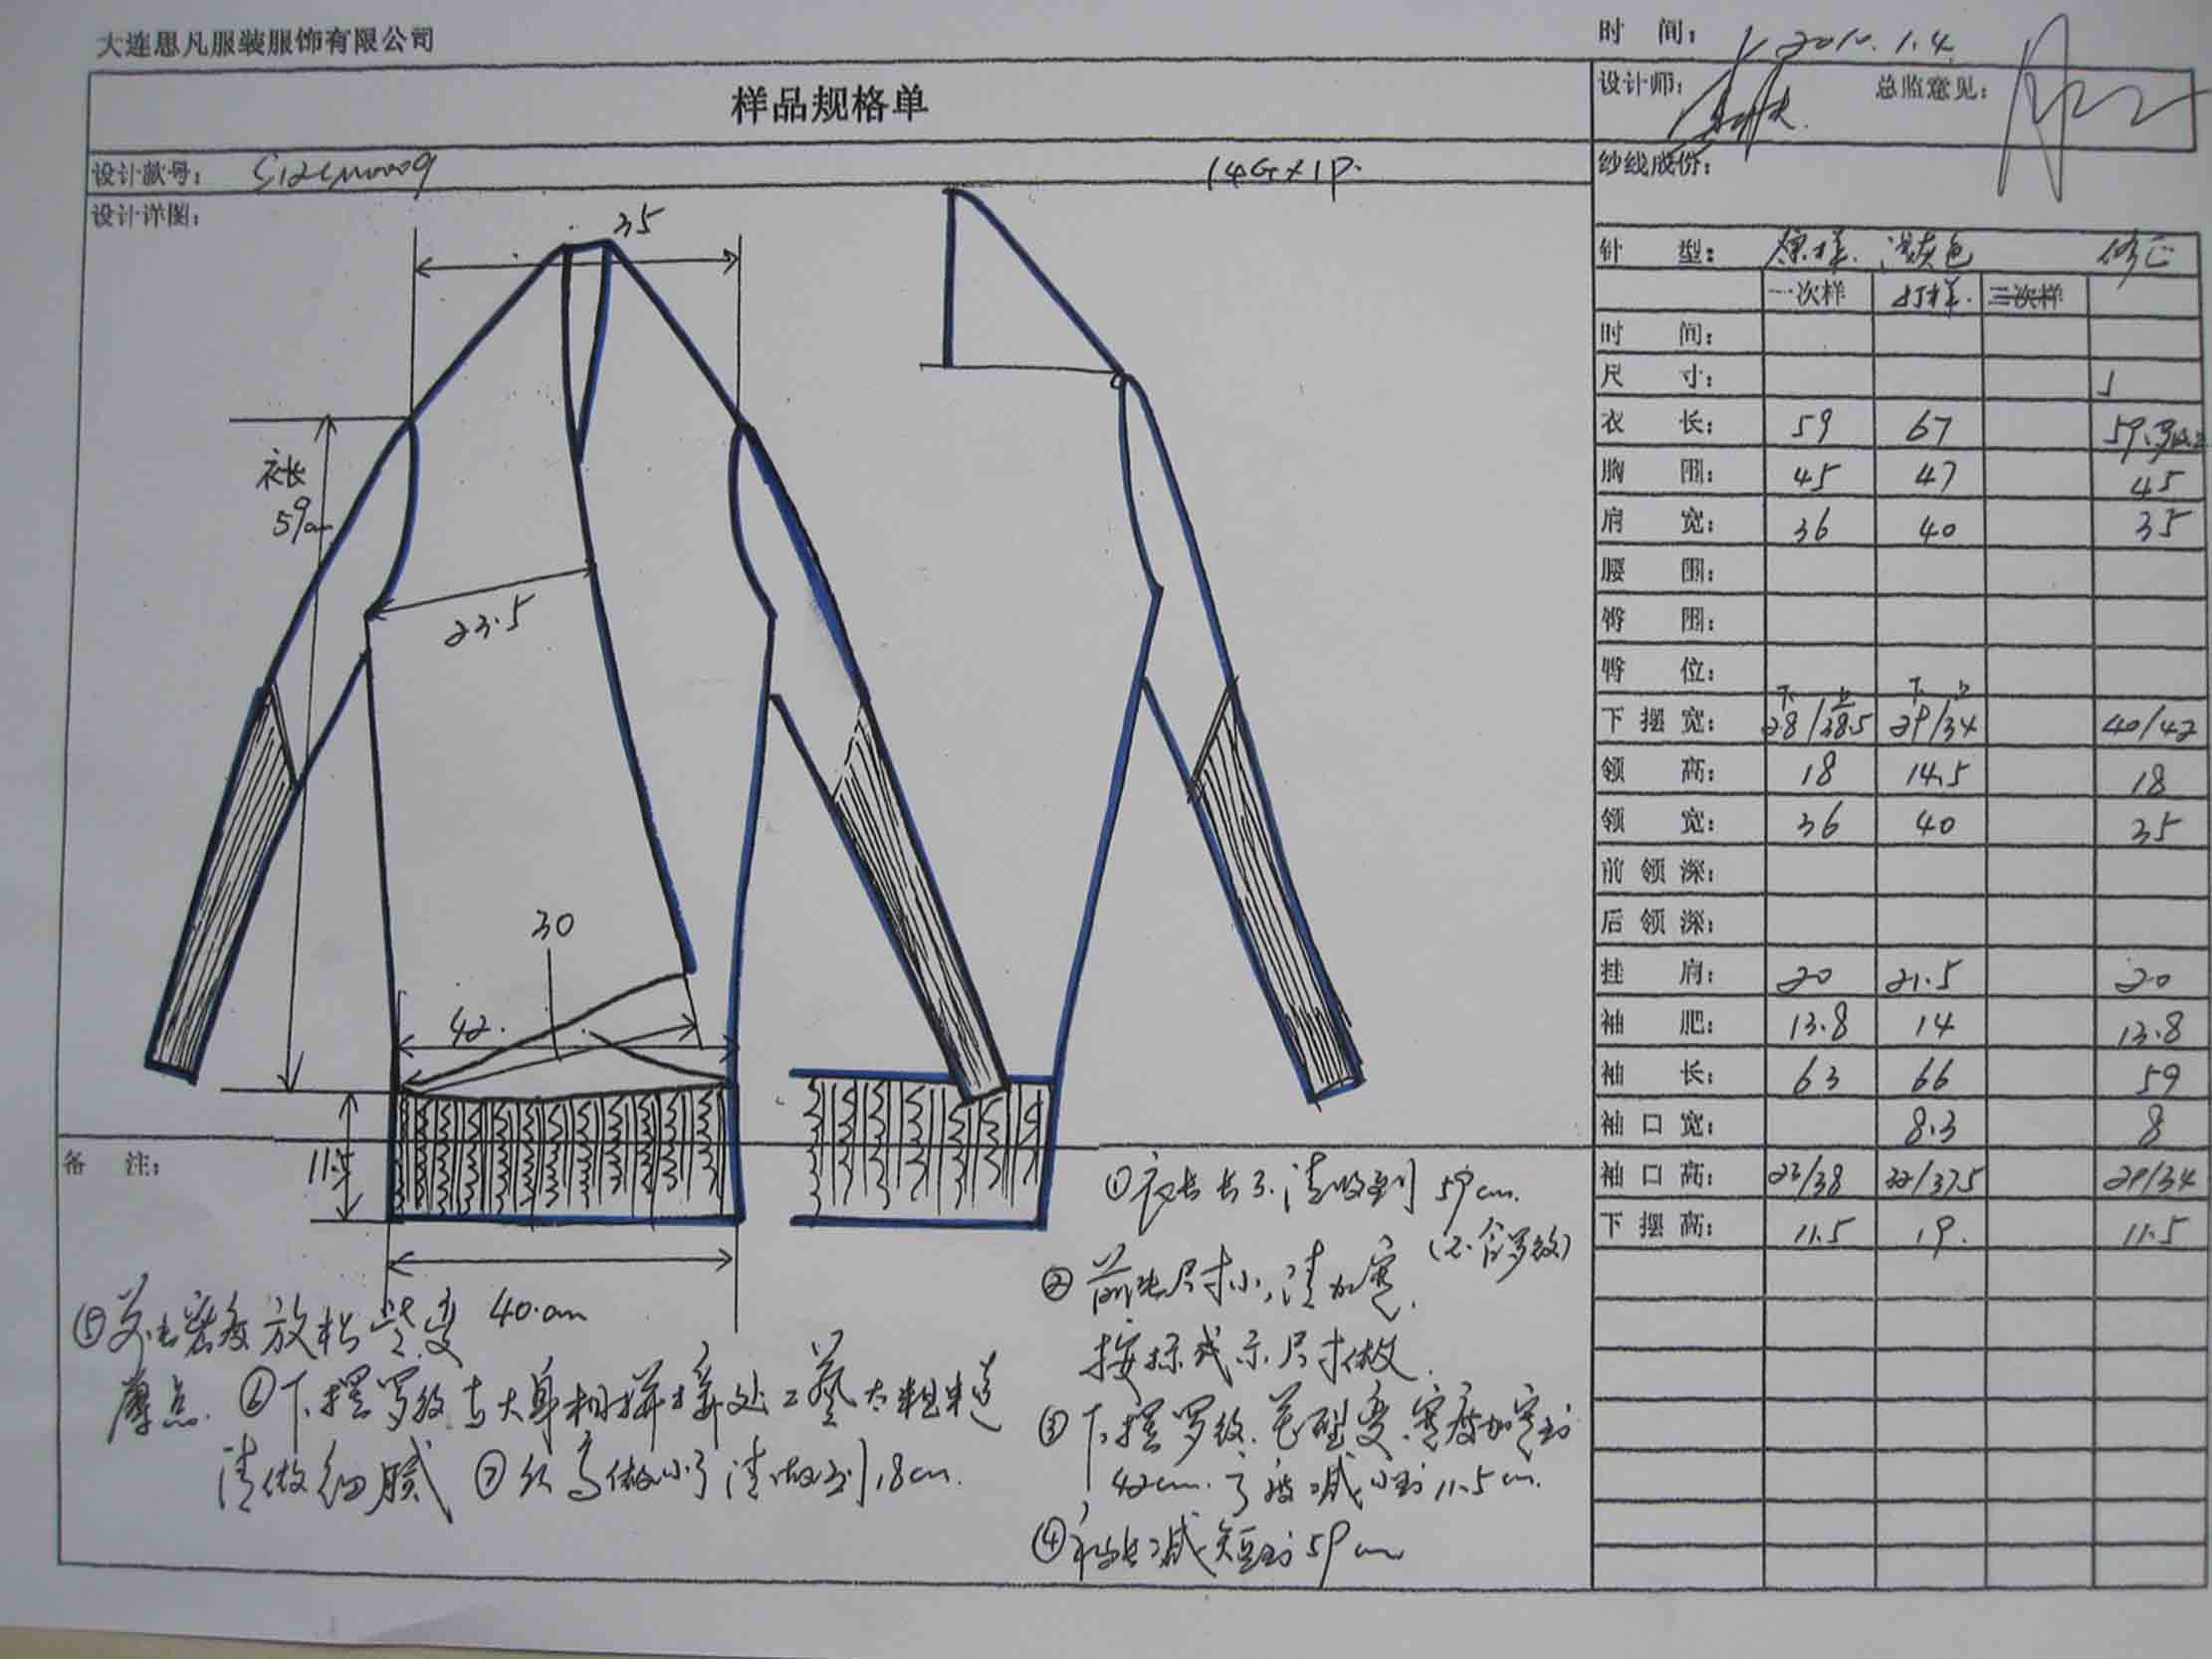 大连思凡服装服饰有限公司
时 间: 2010.1.4
样品规格单
设计师: 总监意见:
设计款号: S12CM0009
14G×1P.
纱线成份:
设计详图:
35
针 型: 原样. 浅灰色 修正
一次样 打样. 三次样
时 间:
尺 寸:
衣 长: 59 67 59.
胸 围: 45 47 45
肩 宽: 36 40 35
腰 围:
臀 围:
臀 位:
下 上 下 上
下 摆 宽: 28/38.5 29/34 40/42
领 高: 18 14.5 18
领 宽: 36 40 35
前 领 深:
后 领 深:
挂 肩: 20 21.5 20
袖 肥: 13.8 14 13.8
袖 长: 63 66 59
袖 口 宽: 8.3 8
袖 口 高: 23/38 22/37.5 29/34
下 摆 高: 11.5 19. 11.5
衣长
59cm
23.5
30
42.
11.5
40.cm
备 注:
①衣长长了.请收到59cm.
(不含罗纹)
②前片尺寸小,请加宽.
按标或示尺寸做.
③下摆罗纹.花型变.宽度加宽到
42cm.高度减小到11.5cm.
④袖长减短到59cm
⑤衣片密度放松些.变
薄点. ⑥下摆罗纹与大身相拼接处工艺太粗糙
请做细腻 ⑦领高做小了请做到18cm.